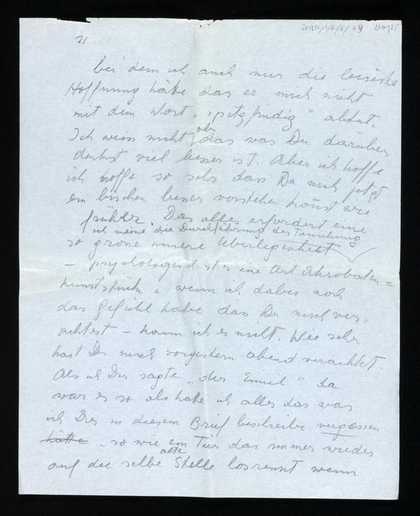 2)
bei dem ich auch nur die leiseste
Hoffnung habe das er mich nicht
mit dem Wort „spitzfindig" abtut.
Ich weiss nicht ob das was Du darüber
denkst viel besser ist. Aber ich hoffe
ich hoffe so sehr das Du mich jetzt
ein bischen besser verstehen könst wie
früher. Das alles erfordert eine
ich meine die Durchführung des
so grosse innere Überlegenheit
– psychologisch ist es eine Art Akrobaten=
kunststück, wenn ich dabei noch
das gefühl habe das Du mich ver-
achtest – kann ich es nicht. Wie sehr
hast Du mich vorgestern abend verachtet.
Als ich Dir sagte „der Emil" Da
war es so als hätte ich alles das was
ich Dir in diesem Brief beschreibe vergessen
hätte, so wie ein Tier das immer wieder
auf die selbe alte Stelle losrennt wenn